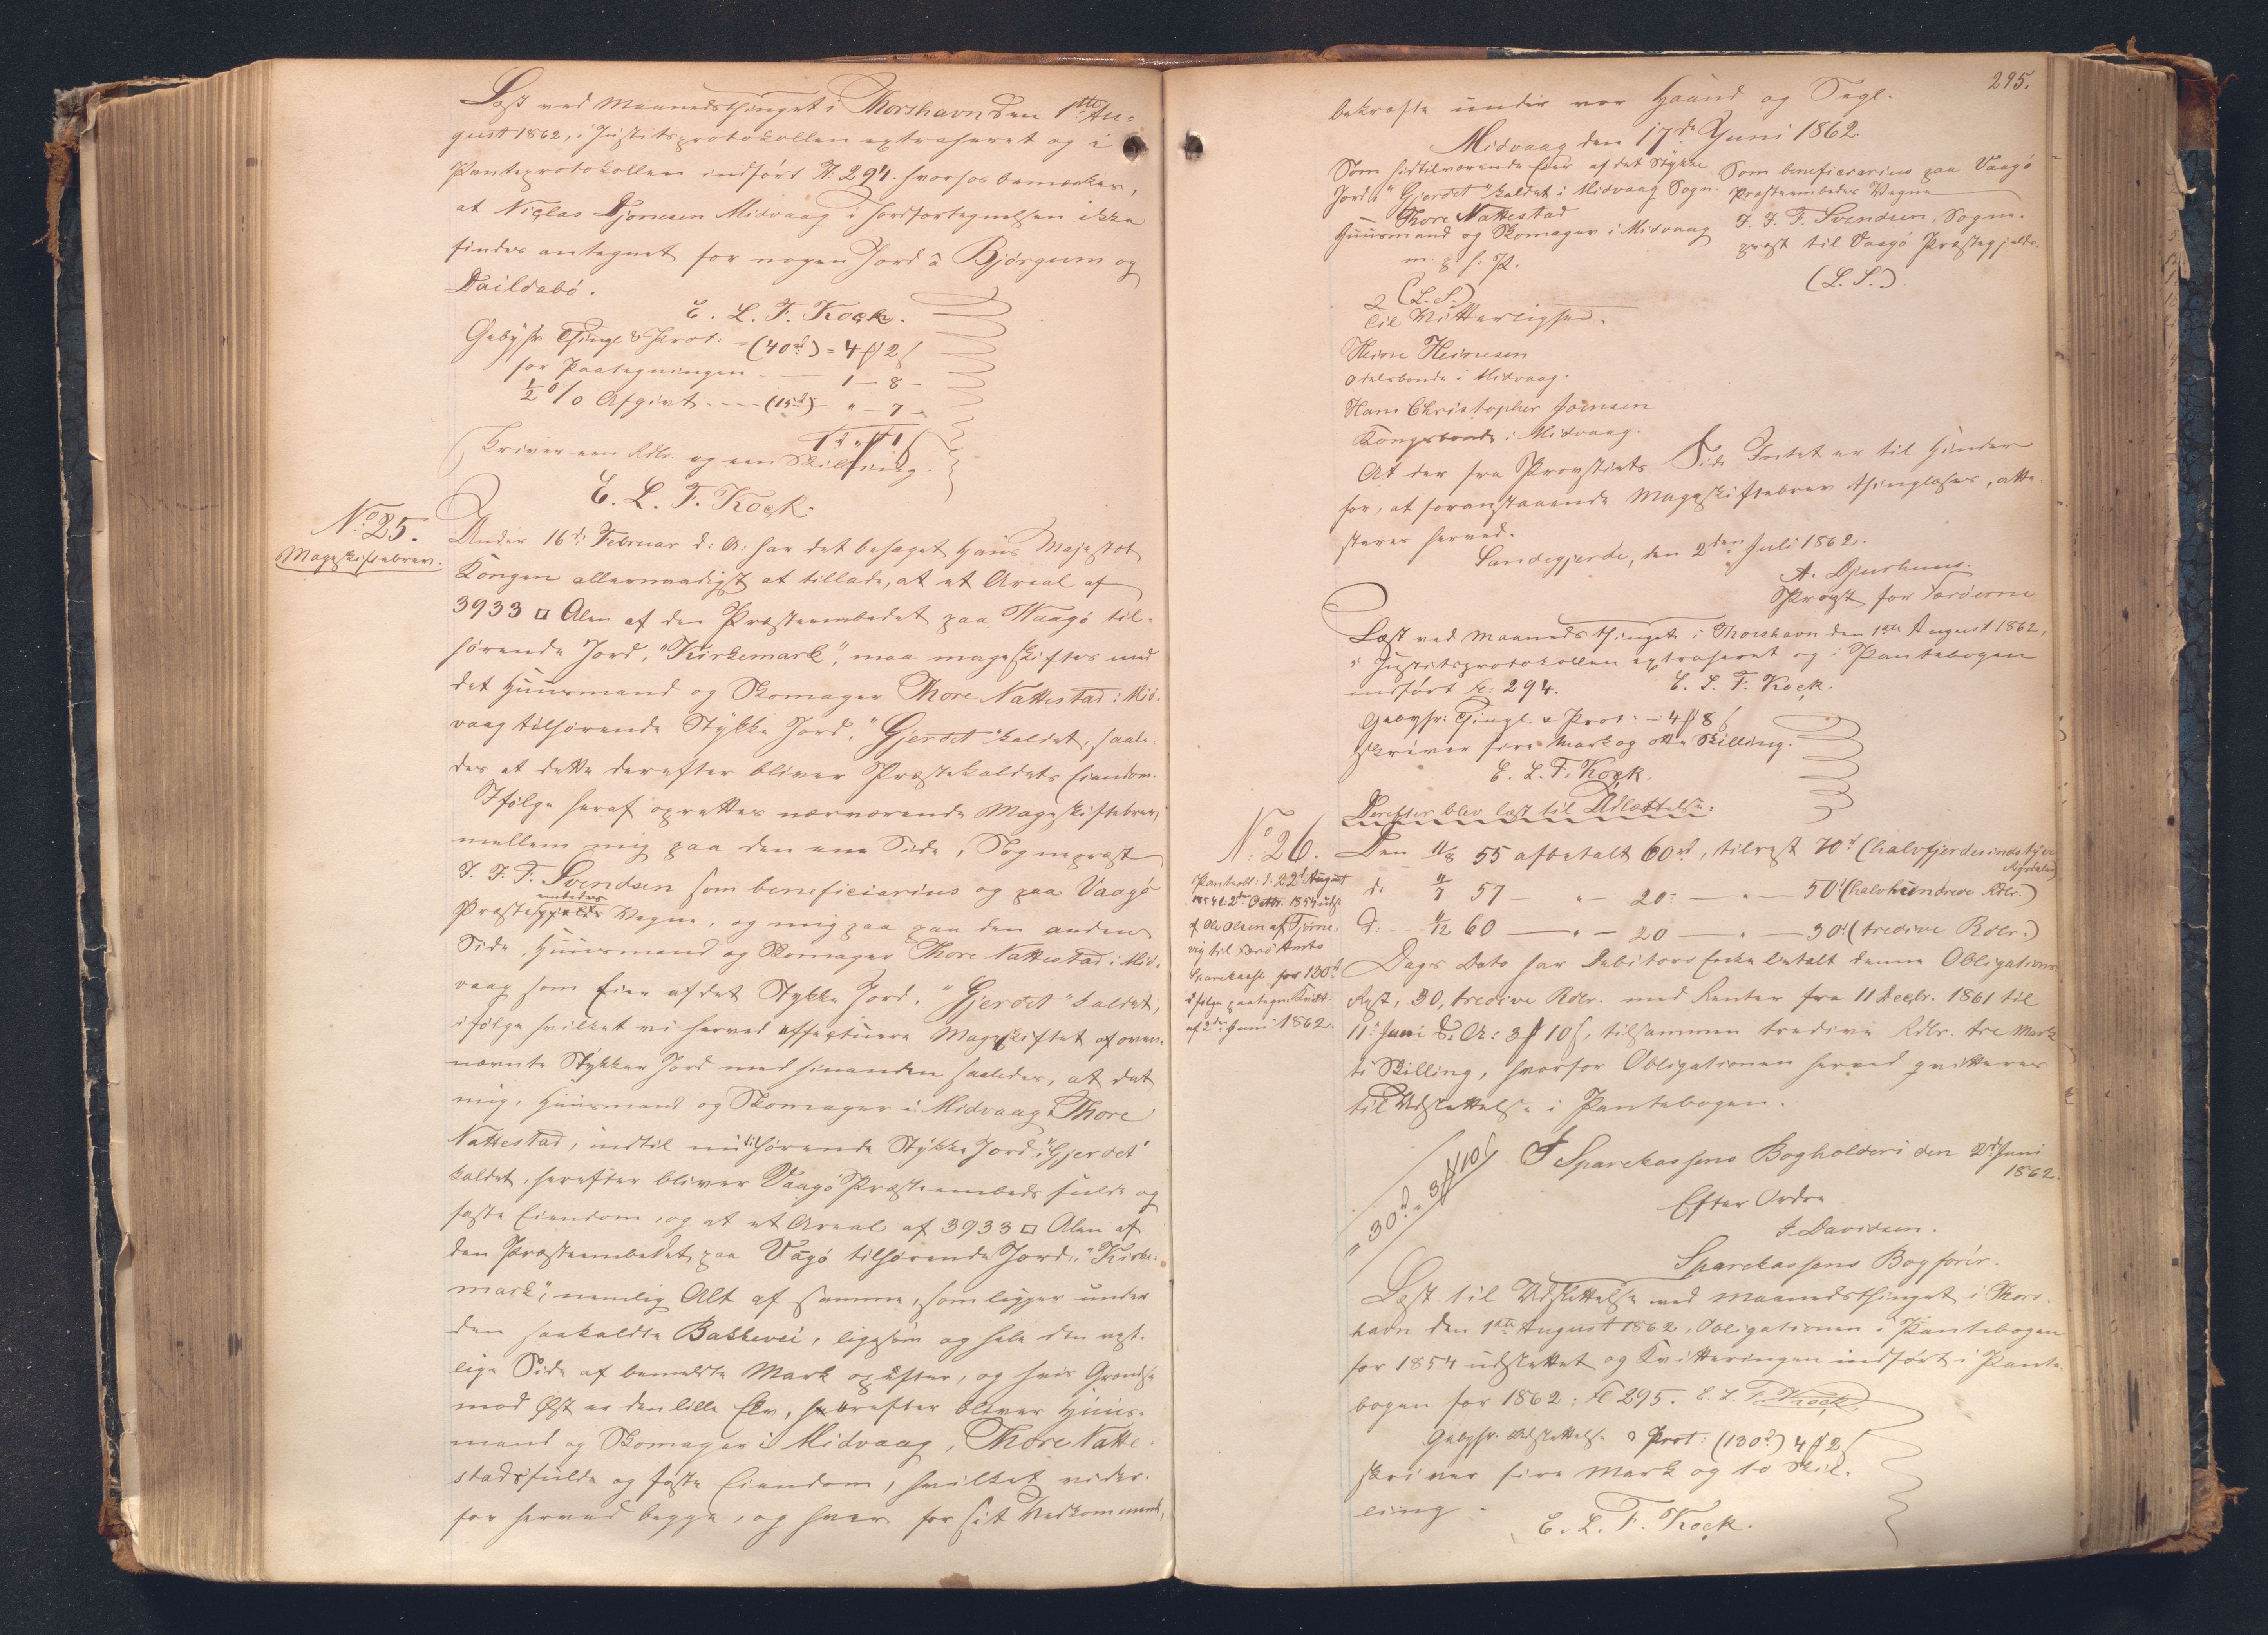 Læst ved Maanedsthinget i Thorshavn den 1ste Au-
gust 1862, i Justitsprotokollen extraheret og i
Panteprotokollen indført Fl. 294. hvorhos bemærkes,
at Niclas Djonesen Midvaag i Jordfortegnelsen ikke
findes antegnet for nogen Jord â Bjørgum og
Daildabø.
E. L. F. Kock.
Gebyhr Thingl & Prot: (40rd) = 4 ℔ 2 ß
for Paategningen — 1 — 8 -
½ % Afgivt --- (15rd) " — 7 -
1rd " ℔ 1 ß
Skriver een Rdlr. og een Skilling.
E. L. F. Kock.
No. 25.
Mageskiftebrev.
Under 16de Februar d: A: har det behaget Hans Majestæt
Kongen allernaadigst at tillade, at et Areal af
3933 □ Alen af den Præsteembedet paa Waagø til-
hørende Jord, "Kirkemark", maa mageskiftes med
det Huusmand og Skomager Thore Nattestad i Mid-
vaag tilhørende Stykke Jord, "Gjerdet" kaldet, saale-
des at dette derefter bliver Præstekaldets Eiendom.
Ifølge heraf oprettes nærværende Mageskiftebrev
mellem mig paa den ene Side, Sognepræst
J. J. F. Svendsen som beneficiarius og paa Vaagø
embedes
Præstegjelds Vegne, og mig paa paa den anden
Side, Huusmand og Skomager Thore Nattestad i Mid-
vaag som Eier af det Stykke Jord, "Gjerdet" kaldet,
ifølge hvilket vi herved effectuere Mageskiftet af oven-
nævnte Stykker Jord med hinanden saaledes, at det
mig, Huusmand og Skomager i Midvaag Thore
Nattestad, indtil nu tilhørende Stykke Jord, "Gjerdet"
kaldet, herefter bliver Vaagø Præsteembeds fulde og
faste Eiendom, og at et Areal af 3933 □ Alen af
den Præsteembedet paa Vågø tilhørende Jord, "Kirke-
mark", nemlig Alt af samme, som ligger under
den saakaldte Bakkevei, ligesom og hele den vest-
lige Side af bemeldte Mark opefter, og hvis Grændse
mod Øst er den lille Elv, herefter bliver Huus-
mand og Skomager i Midvaag, Thore Natte-
stads fulde og faste Eiendom, hvilket vi der-
for herved begge, og hver for sit Vedkommende,
295.
bekræfte under vor Haand og Segl.
Midvaag den 17de Juni 1862.
Som hidtilværende Eier af det Stykke
Jord, "Gjerdet" kaldet i Midvaag Sogn.
Thore Nattestad
Huusmand og Skomager i Midvaag
m. f. P.
(L. S.)
Som beneficiarius paa Vaagø
Præsteembedes Vegne
J. J. F. Svendsen, Sogne-
præst til Vaagø Præstegjeld.
(L. S.)
Til Vitterlighed.
Heine Heinesen
Odelsbonde i Midvaag.
Hans Christopher Joensen
Kongsbonde i Midvaag.
At der fra Provstiets Side Intet er til Hinder
for, at foranstaaende Mageskiftebrev thinglæses, atte-
steres herved.
Sandegjerde, den 2den Juli 1862.
A. Djurhuus.
Provst for Færøerne
Læst ved Maanedsthinget i Thorshavn den 1ste August 1862,
i Justitsprotokollen extraheret og i Pantebogen
indført Fl: 294. E. L. F. Kock.
Gebyhr: Thingl & Prot: - 4 ℔ 8 ß
skriver fire Mark og otte Skilling.
E. L. F. Kock.
Derefter blev læst til Udslettelse:
No. 26.
Panteobl: d. 22d August
1854 l: 2de Octbr. 1854 uds.
af Ole Olsen af Tjørne-
vig til Færø Amts
Sparekasse for 130rd
ifølge paategn. Kvitt.
af 2den Juni 1862.
Den 11/8 55 afbetalt 60rd, tilrest 70d (halvfjerdesindstyve
Rigsdaler)
d: 11/7 57 — " — 20: — " — 50d (halvhundrede Rdlr.)
d: 4/12 60 — " — 20 — " — 30d (tredive Rdlr.)
Dags Dato har Debitors Enke betalt denne Obligations
Rest, 30, tredive Rdlr. med Renter fra 11 Decbr. 1861 til
11. Juni d. A: 3 ℔ 10 ß, tilsammen tredive Rdlr. tre Mark
ti Skilling, hvorfor Obligationen herved qvitteres
til Udslettelse i Pantebogen.
I Sparekassens Bogholderi den 2d Juni
1862.
" 30d. 3 ℔ 10 ß
Efter Ordre
J. Davidsen.
Sparekassens Bogfører.
Læst til Udslettelse ved Maanedsthinget i Thors-
havn den 1ste August 1862, Obligationen i Pantebogen
for 1854 udslettet og Kvitteringen indført i Pante-
bogen for 1862: Fl 295. E. L. F. Kock.
Gebyhr. Udslettelse & Prot: (130d) 4 ℔ 2 ß
skriver fire Mark og to Skil-
ling.
E. L. F. Kock.